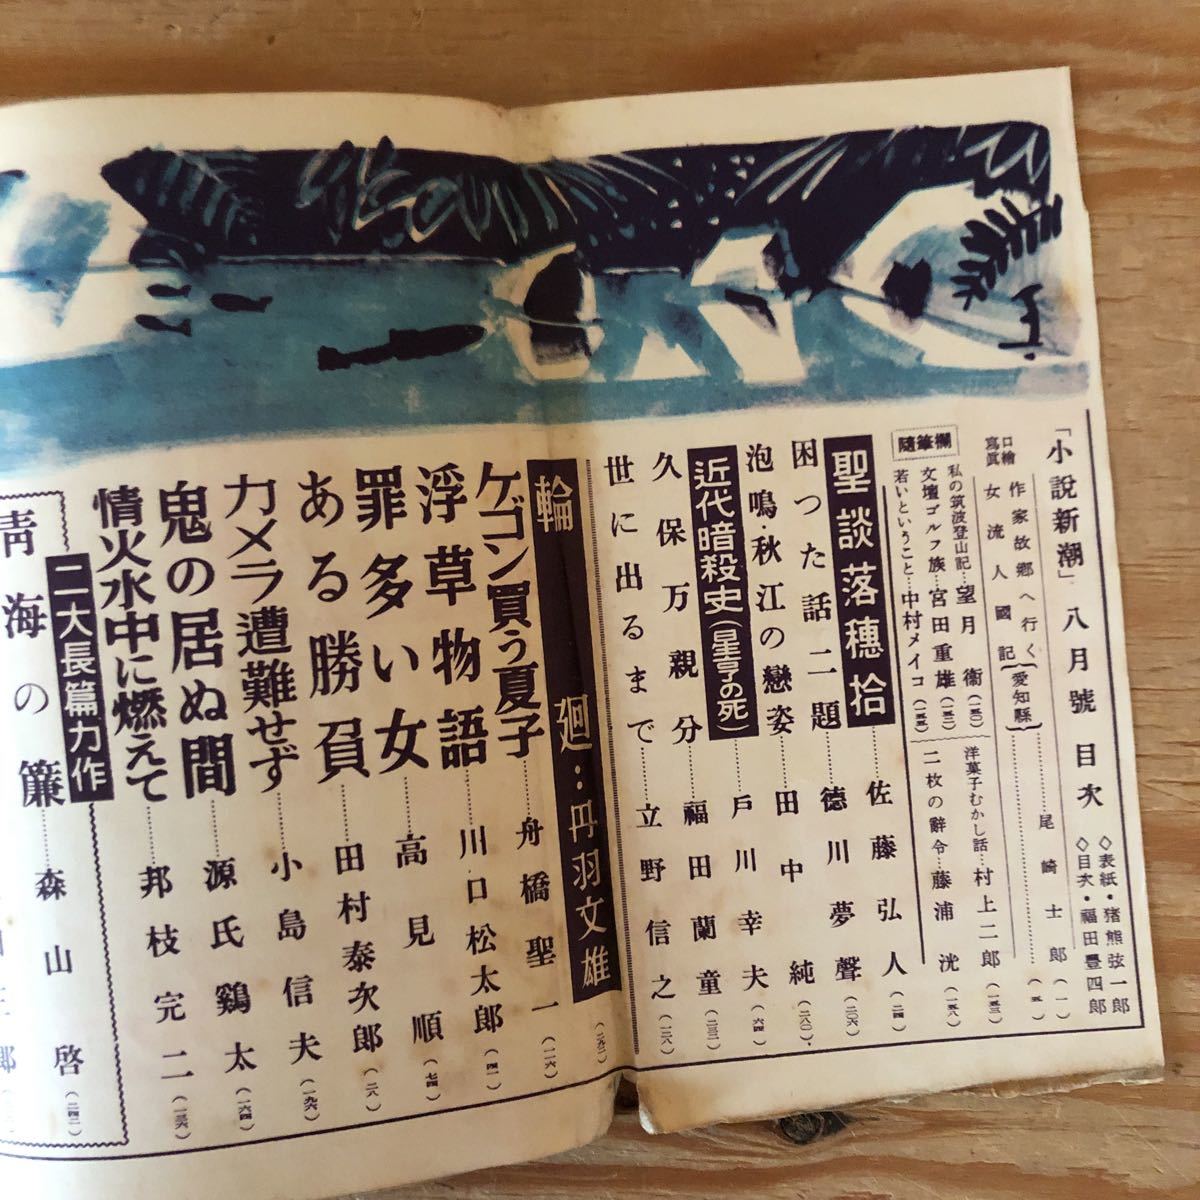 「小説新潮」八月號 目次
◇表紙・猪熊弦一郎
◇目次・福田豊四郎
口繪寫眞
作家故郷へ行く（愛知縣）……尾崎士郎（一）
女流人國記……（五）
隨筆欄
私の筑波登山記…望月衛（一五〇）
文壇ゴルフ族…宮田重雄（一五二）
若いということ…中村メイコ（一五五）
洋菓子むかし話…村上二郎（一五三）
二枚の辭令…藤浦洸（一五八）
聖談落穂拾……佐藤弘人（二四）
困った話二題……徳川夢聲（二〇六）
泡鳴・秋江の戀姿……田中純（二八〇）
近代暗殺史（星亨の死）……戸川幸夫（六四）
久保万親分……福田蘭童（二三二）
世に出るまで……立野信之（一二八）
輪廻：丹羽文雄（二九二）
ケゴン買う夏子……舟橋聖一（一一六）
浮草物語……川口松太郎（四一）
罪多い女……高見順（七四）
ある勝負……田村泰次郎（二八）
カメラ遭難せず……小島信夫（一九六）
鬼の居ぬ間……源氏鶏太（一六四）
情火水中に燃えて……邦枝完二（一三六）
二大長篇力作
青海の簾……森山啓（二四二）